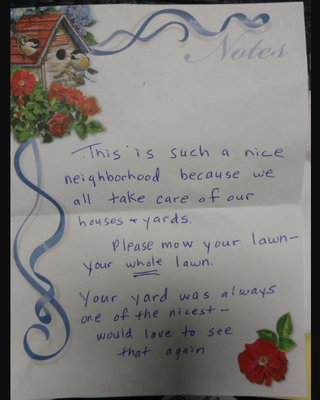 Notes
This is such a nice
neighborhood because we
all take care of our
houses + yards.
Please mow your lawn—
your whole lawn.
Your yard was always
one of the nicest—
would love to see
that again